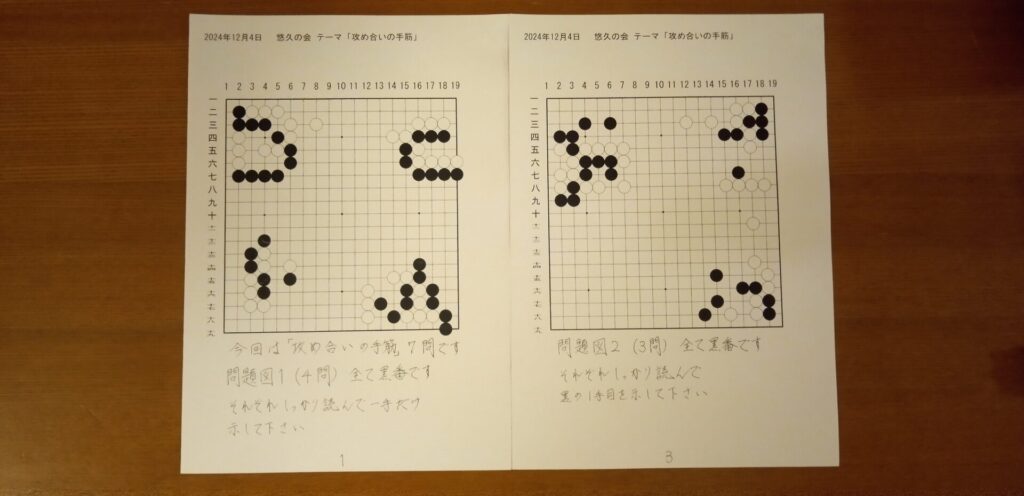 2024年12月4日 悠久の会 テーマ「攻め合いの手筋」
1 2 3 4 5 6 7 8 9 10 11 12 13 14 15 16 17 18 19
一
二
三
四
五
六
七
八
九
十
今回は「攻め合いの手筋」7問です
問題図1(4問)全て黒番です
それぞれしっかり読んで一手だけ
示して下さい
1
2024年12月4日 悠久の会 テーマ「攻め合いの手筋」
1 2 3 4 5 6 7 8 9 10 11 12 13 14 15 16 17 18 19
一
二
三
四
五
六
七
八
九
十
問題図2(3問)全て黒番です
それぞれしっかり読んで
黒の1手目を示して下さい
3